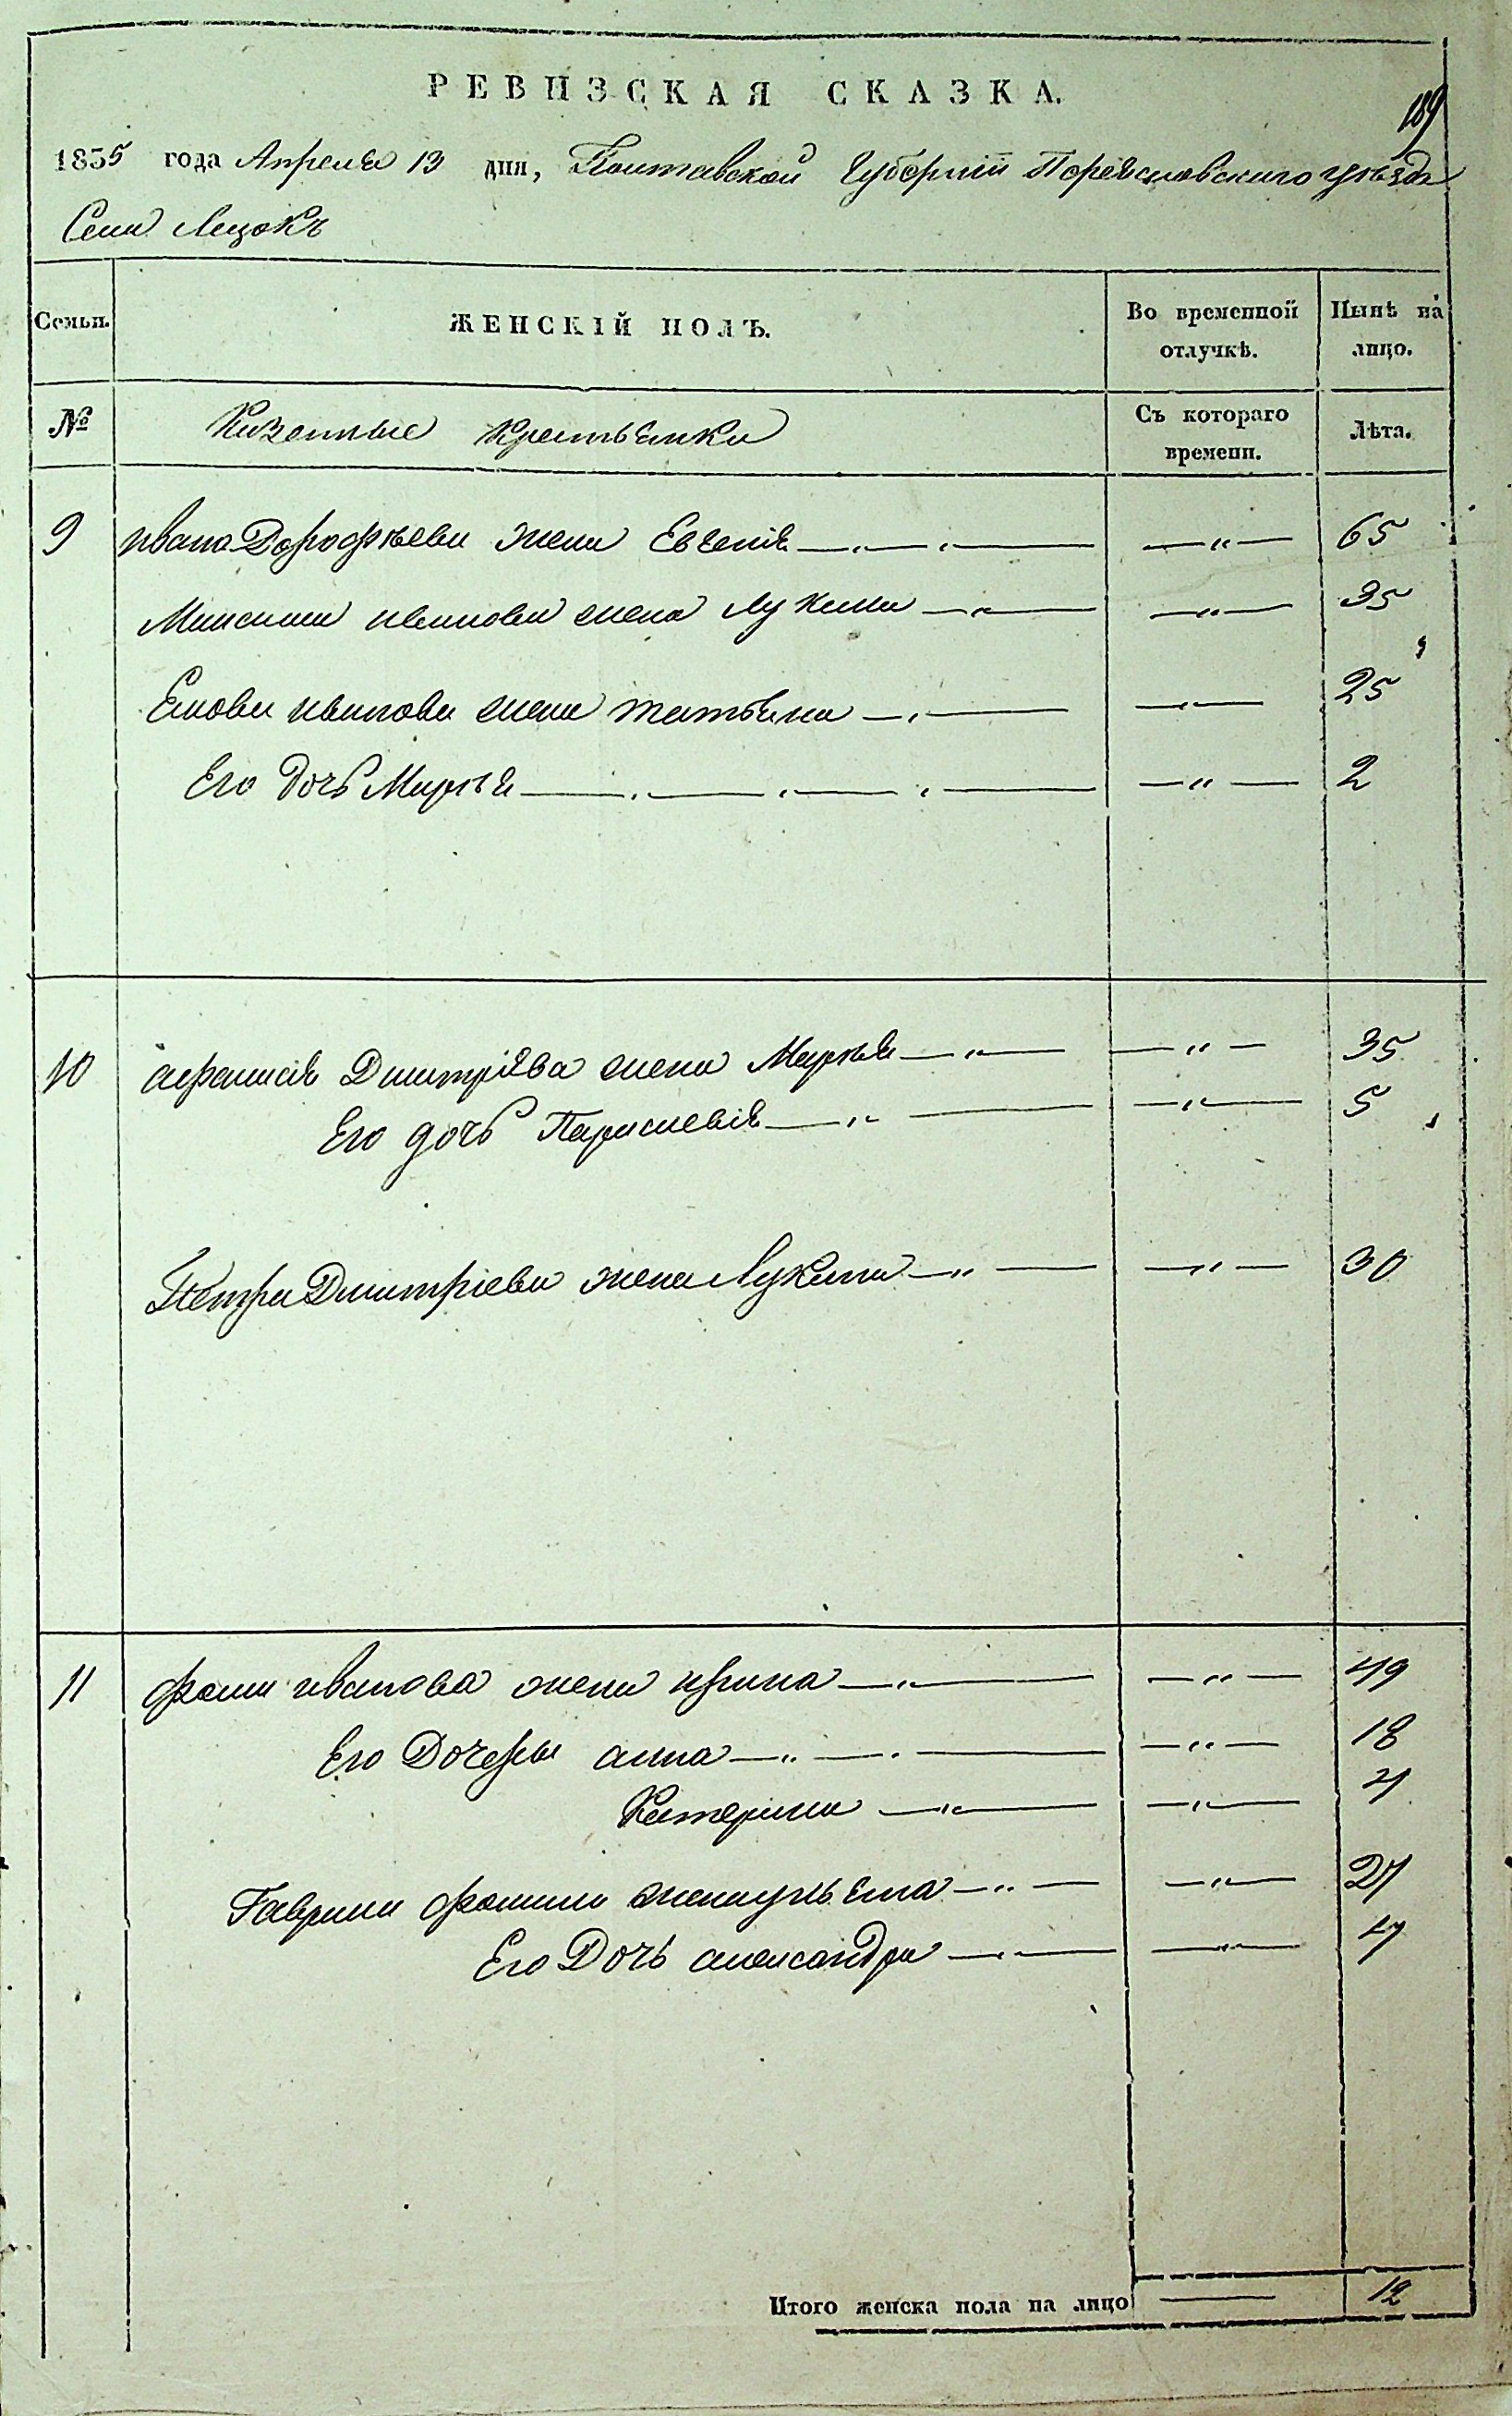 РЕВИЗСКАЯ СКАЗКА.
189
1835 года Апреля 13 дня, Полтавской Губернии Переяславского уезда
Села Лецокъ
Семьи. ЖЕНСКІЙ ПОЛЪ. Во временной отлучкѣ. Нынѣ на лицо.
№ Казенные крестьянки Съ котораго времени. Лѣта.
9 ивана Дорофѣева жена Евгенія — „ — 65
Максима иванова жена Лукия — „ — 35
иванова жена татьяна — „ — 25
Его дочь Марья — „ — 2
10 афанасія Дмитріева жена Марья — „ — 35
Его дочь Параскевія — „ — 5
Петра Дмитріева жена Лукия — „ — 30
11 фомы иванова жена ирина — „ — 49
Его Дочеры анна — „ — 18
Катерина — „ — 4
Гаврила фомина жена ульяна — „ — 24
Его Дочь александра — „ — 4
Итого женска пола на лицо — 12